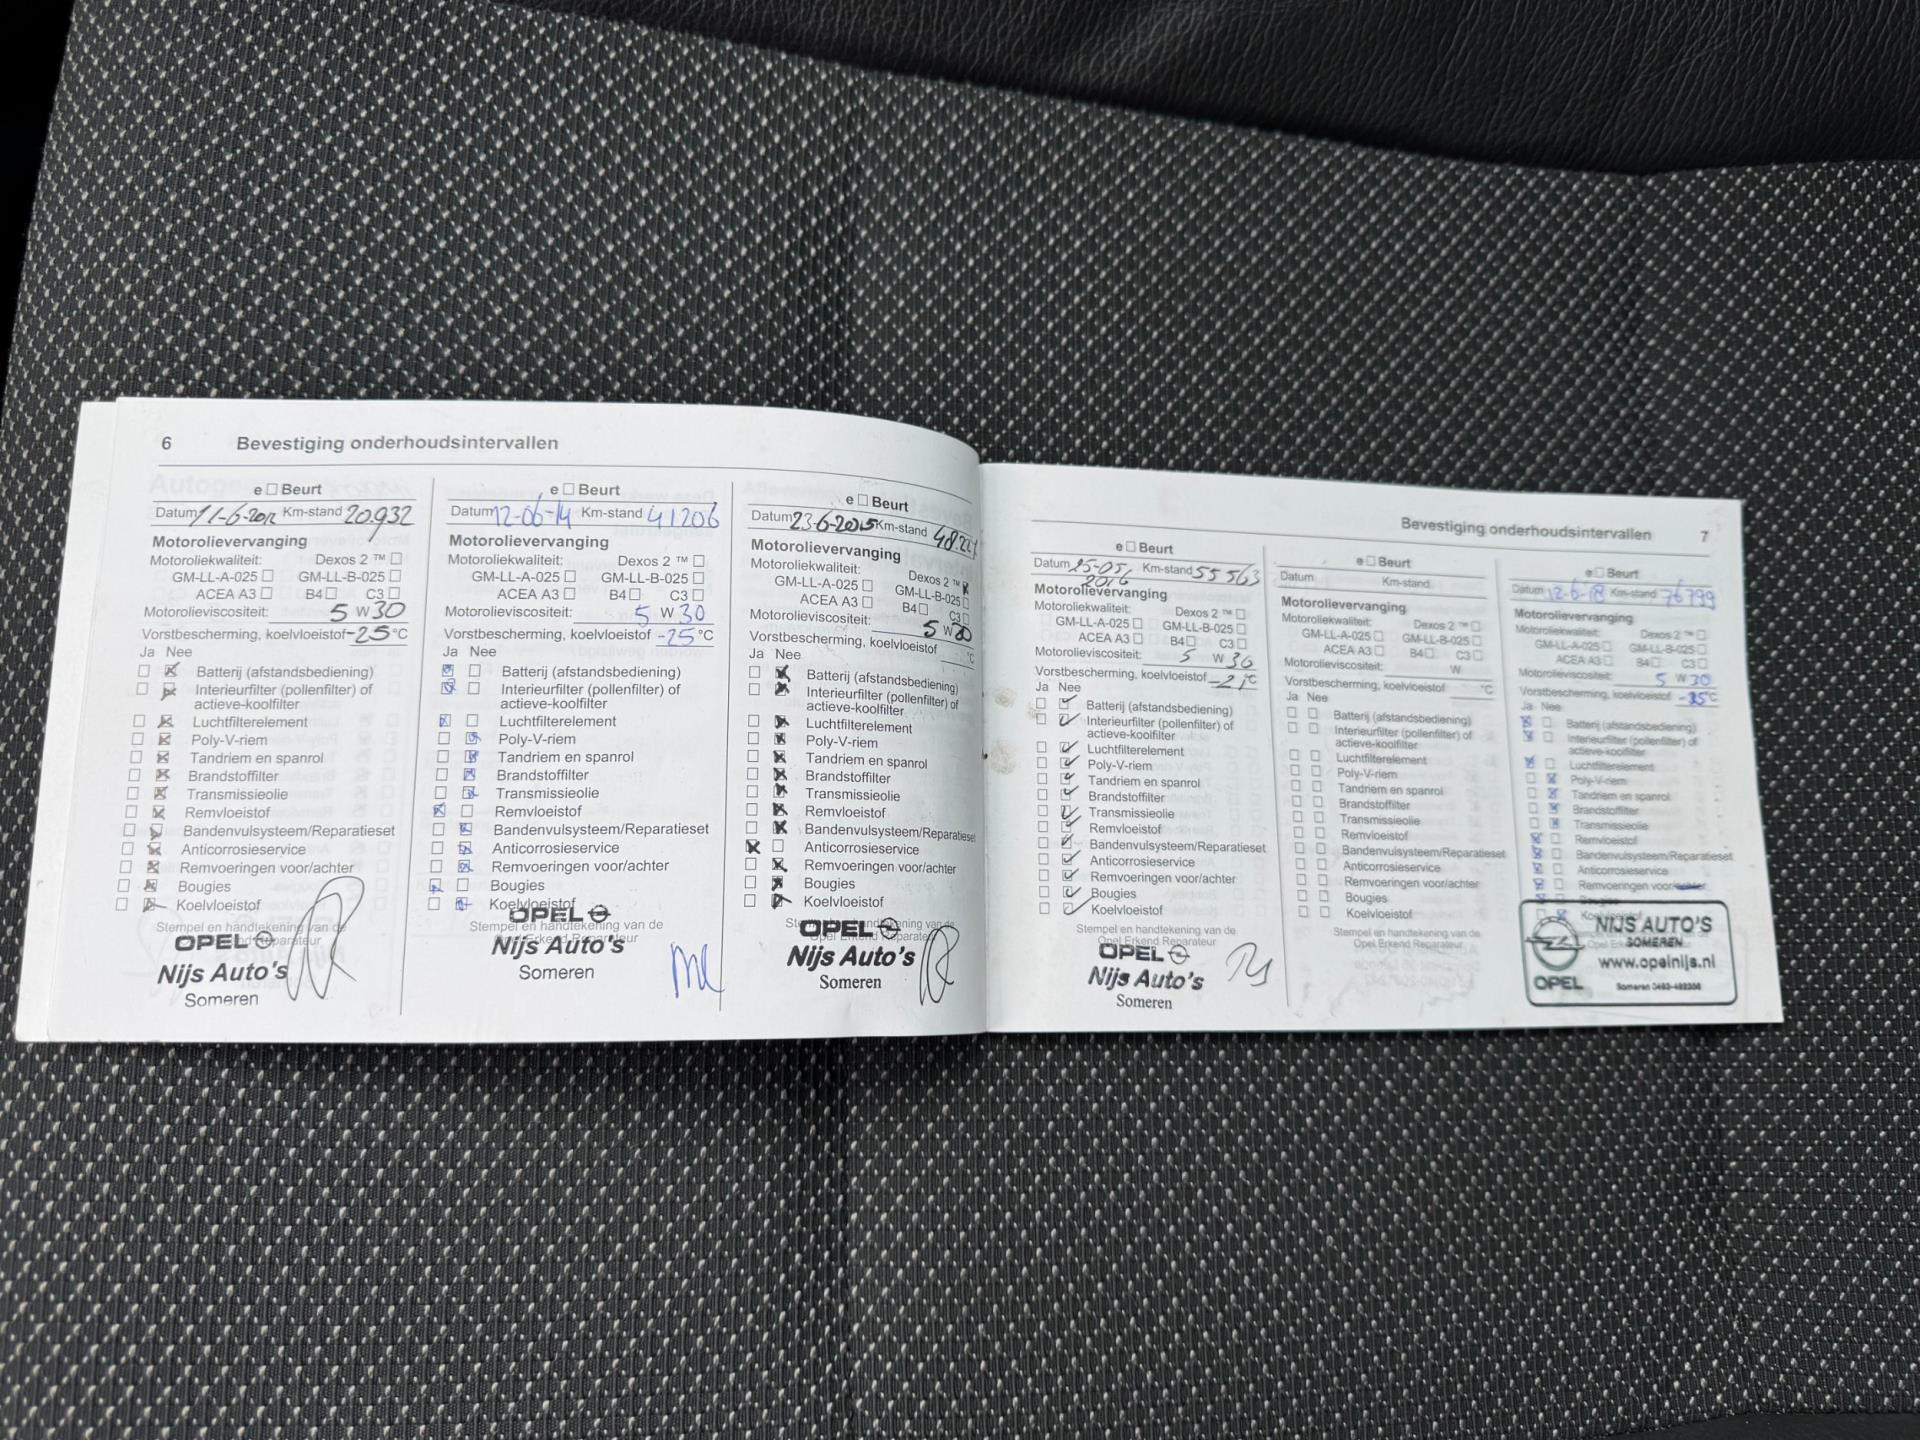 6 Bevestiging onderhoudsintervallen
e ☐ Beurt
Datum 11-6-2012 Km-stand 20.932
Motorolievervanging
Motoroliekwaliteit: Dexos 2 ™ ☐
GM-LL-A-025 ☐ GM-LL-B-025 ☐
ACEA A3 ☐ B4 ☐ C3 ☐
Motorolieviscositeit: 5 W 30
Vorstbescherming, koelvloeistof -25 °C
Ja Nee
Batterij (afstandsbediening)
Interieurfilter (pollenfilter) of
actieve-koolfilter
Luchtfilterelement
Poly-V-riem
Tandriem en spanrol
Brandstoffilter
Transmissieolie
Remvloeistof
Bandenvulsysteem/Reparatieset
Anticorrosieservice
Remvoeringen voor/achter
Bougies
Koelvloeistof
Stempel en handtekening van de
OPEL
Nijs Auto's
Someren
e ☐ Beurt
Datum 12-06-14 Km-stand 41206
Motorolievervanging
Motoroliekwaliteit: Dexos 2 ™ ☐
GM-LL-A-025 ☐ GM-LL-B-025 ☐
ACEA A3 ☐ B4 ☐ C3 ☐
Motorolieviscositeit: 5 W 30
Vorstbescherming, koelvloeistof -25 °C
Ja Nee
Batterij (afstandsbediening)
Interieurfilter (pollenfilter) of
actieve-koolfilter
Luchtfilterelement
Poly-V-riem
Tandriem en spanrol
Brandstoffilter
Transmissieolie
Remvloeistof
Bandenvulsysteem/Reparatieset
Anticorrosieservice
Remvoeringen voor/achter
Bougies
Koelvloeistof
Stempel en handtekening van de
OPEL
Nijs Auto's
Someren
e ☐ Beurt
Datum 23-6-2015 Km-stand
Motorolievervanging
Motoroliekwaliteit: Dexos 2 ™ ☒
GM-LL-A-025 ☐ GM-LL-B-025 ☐
ACEA A3 ☐ B4 ☐ C3 ☐
Motorolieviscositeit: 5 W 30
Vorstbescherming, koelvloeistof °C
Ja Nee
Batterij (afstandsbediening)
Interieurfilter (pollenfilter) of
actieve-koolfilter
Luchtfilterelement
Poly-V-riem
Tandriem en spanrol
Brandstoffilter
Transmissieolie
Remvloeistof
Bandenvulsysteem/Reparatieset
Anticorrosieservice
Remvoeringen voor/achter
Bougies
Koelvloeistof
Stempel en handtekening van de
Opel Erkend Reparateur
OPEL
Nijs Auto's
Someren
Bevestiging onderhoudsintervallen 7
e ☐ Beurt
Datum 25-05, Km-stand 55563
2016
Motorolievervanging
Motoroliekwaliteit: Dexos 2 ™ ☐
GM-LL-A-025 ☐ GM-LL-B-025 ☐
ACEA A3 ☐ B4 ☐ C3 ☐
Motorolieviscositeit: 5 W 30
Vorstbescherming, koelvloeistof -21 °C
Ja Nee
Batterij (afstandsbediening)
Interieurfilter (pollenfilter) of
actieve-koolfilter
Luchtfilterelement
Poly-V-riem
Tandriem en spanrol
Brandstoffilter
Transmissieolie
Remvloeistof
Bandenvulsysteem/Reparatieset
Anticorrosieservice
Remvoeringen voor/achter
Bougies
Koelvloeistof
Stempel en handtekening van de
Opel Erkend Reparateur
OPEL
Nijs Auto's
Someren
e ☐ Beurt
Datum Km-stand
Motorolievervanging
Motoroliekwaliteit: Dexos 2 ™ ☐
GM-LL-A-025 ☐ GM-LL-B-025 ☐
ACEA A3 ☐ B4 ☐ C3 ☐
Motorolieviscositeit: W
Vorstbescherming, koelvloeistof °C
Ja Nee
Batterij (afstandsbediening)
Interieurfilter (pollenfilter) of
actieve-koolfilter
Luchtfilterelement
Poly-V-riem
Tandriem en spanrol
Brandstoffilter
Transmissieolie
Remvloeistof
Bandenvulsysteem/Reparatieset
Anticorrosieservice
Remvoeringen voor/achter
Bougies
Koelvloeistof
Stempel en handtekening van de
Opel Erkend Reparateur
e ☐ Beurt
Datum 12-6-18 Km-stand 76799
Motorolievervanging
Motoroliekwaliteit: Dexos 2 ™ ☐
GM-LL-A-025 ☐ GM-LL-B-025 ☐
ACEA A3 ☐ B4 ☐ C3 ☐
Motorolieviscositeit: 5 W 30
Vorstbescherming, koelvloeistof °C
Ja Nee
Batterij (afstandsbediening)
Interieurfilter (pollenfilter) of
actieve-koolfilter
Luchtfilterelement
Poly-V-riem
Tandriem en spanrol
Brandstoffilter
Transmissieolie
Remvloeistof
Bandenvulsysteem/Reparatieset
Anticorrosieservice
Remvoeringen voor/achter
Bougies
Koelvloeistof
NIJS AUTO'S
SOMEREN
www.opelnijs.nl
OPEL Someren